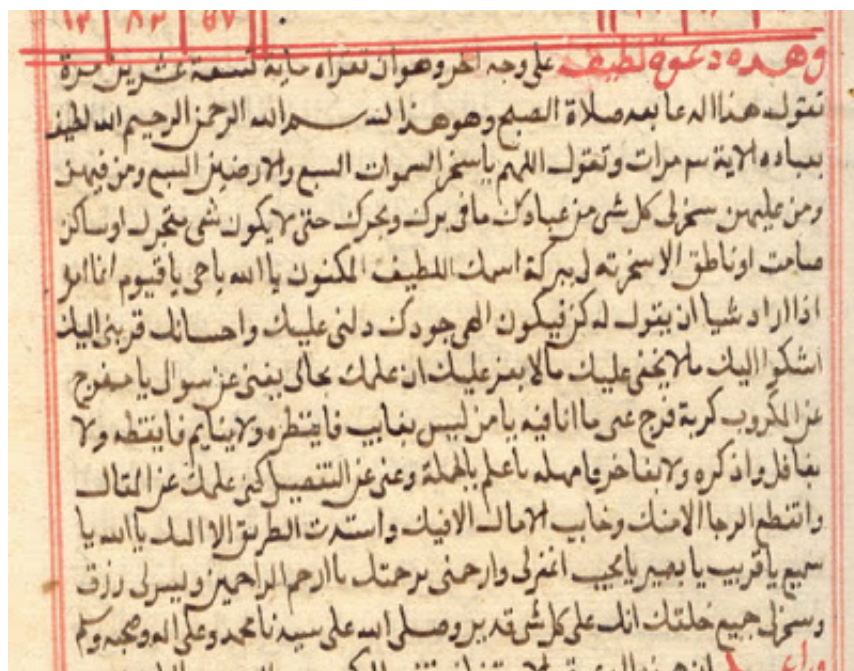 ١٢ ٨٣ ٥٧
وهذه دعوة لطيفه على وجه اخر وهو ان تقراه ماية تسعة عشرين مرة
تقول هذا الدعا بعد صلاة الصبح وهو هذا لله بسم الله الرحمن الرحيم الله لطيف
بعباده الاية سم مرات وتقول اللهم يا سخر السموات السبع والارضين السبع ومن فيهن
ومن عليهن سخر لى كل شى من عبادك ما فى برك وبحرك حتى لا يكون شى متحرك او ساكن
صامت او ناطق الا سخرته لى ببركة اسمك اللطيف المكنون يا الله يا حى يا قيوم انما امره
اذا اراد شيا ان يقول له كن فيكون الهى جودك دلنى عليك واحسانك قربنى اليك
اشكوا اليك ملا يخفى عليك مالا يعسر عليك ان علمك بحالى يغنى عن سوال يا مفرج
عن المكروب كربة فرج عنى ما انا فيه يا من ليس بغايب فاينتظره ولا ينايم فايقظه ولا
بغافل واذكره ولا بفاخر فامهله يا علم بالجملة وغنى عن التفصيل كفى علمك عن المقال
وانقطع الرجا الا منك وخاب الامال الا فيك واستدت الطريق الا اليك يا الله يا
سميع يا قريب يا بصير يا مجيب اغفر لى وارحمنى برحمتك يا ارحم الراحمين ويسر لى رزق
وسخر لى جميع خلقك انك على كل شى قدير وصلى الله على سيدنا محمد وعلى اله وصحبه وسلم